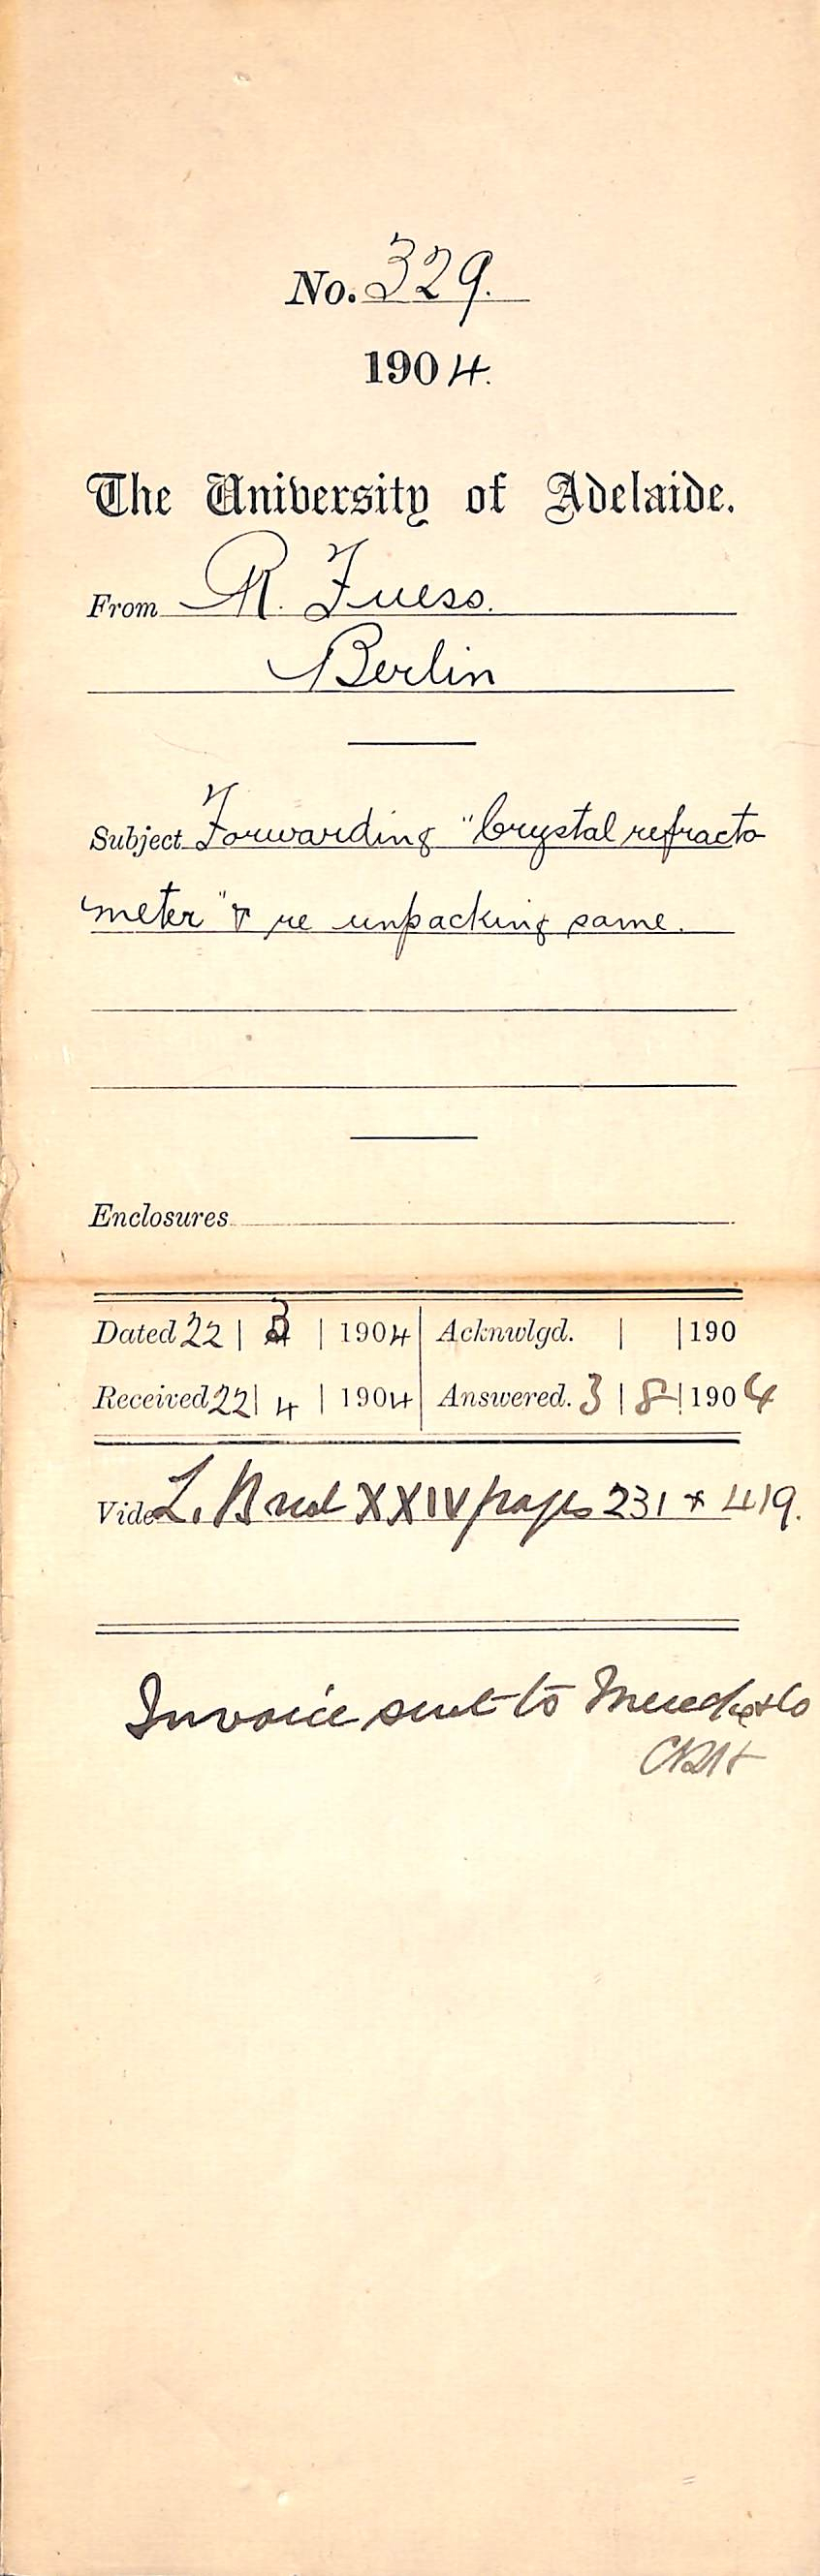 No. 329.
1904.
The University of Adelaide.
From R. Fuess.
Berlin
Subject Forwarding "Crystal refracto
meter" & re unpacking same.
Enclosures
Dated 22 | 3 | 1904 | Acknwlgd. | | 190
Received 22 | 4 | 1904 | Answered. 3 | 8 | 1904
Vide L. Book XXIV pages 231 & 419.
Invoice sent to